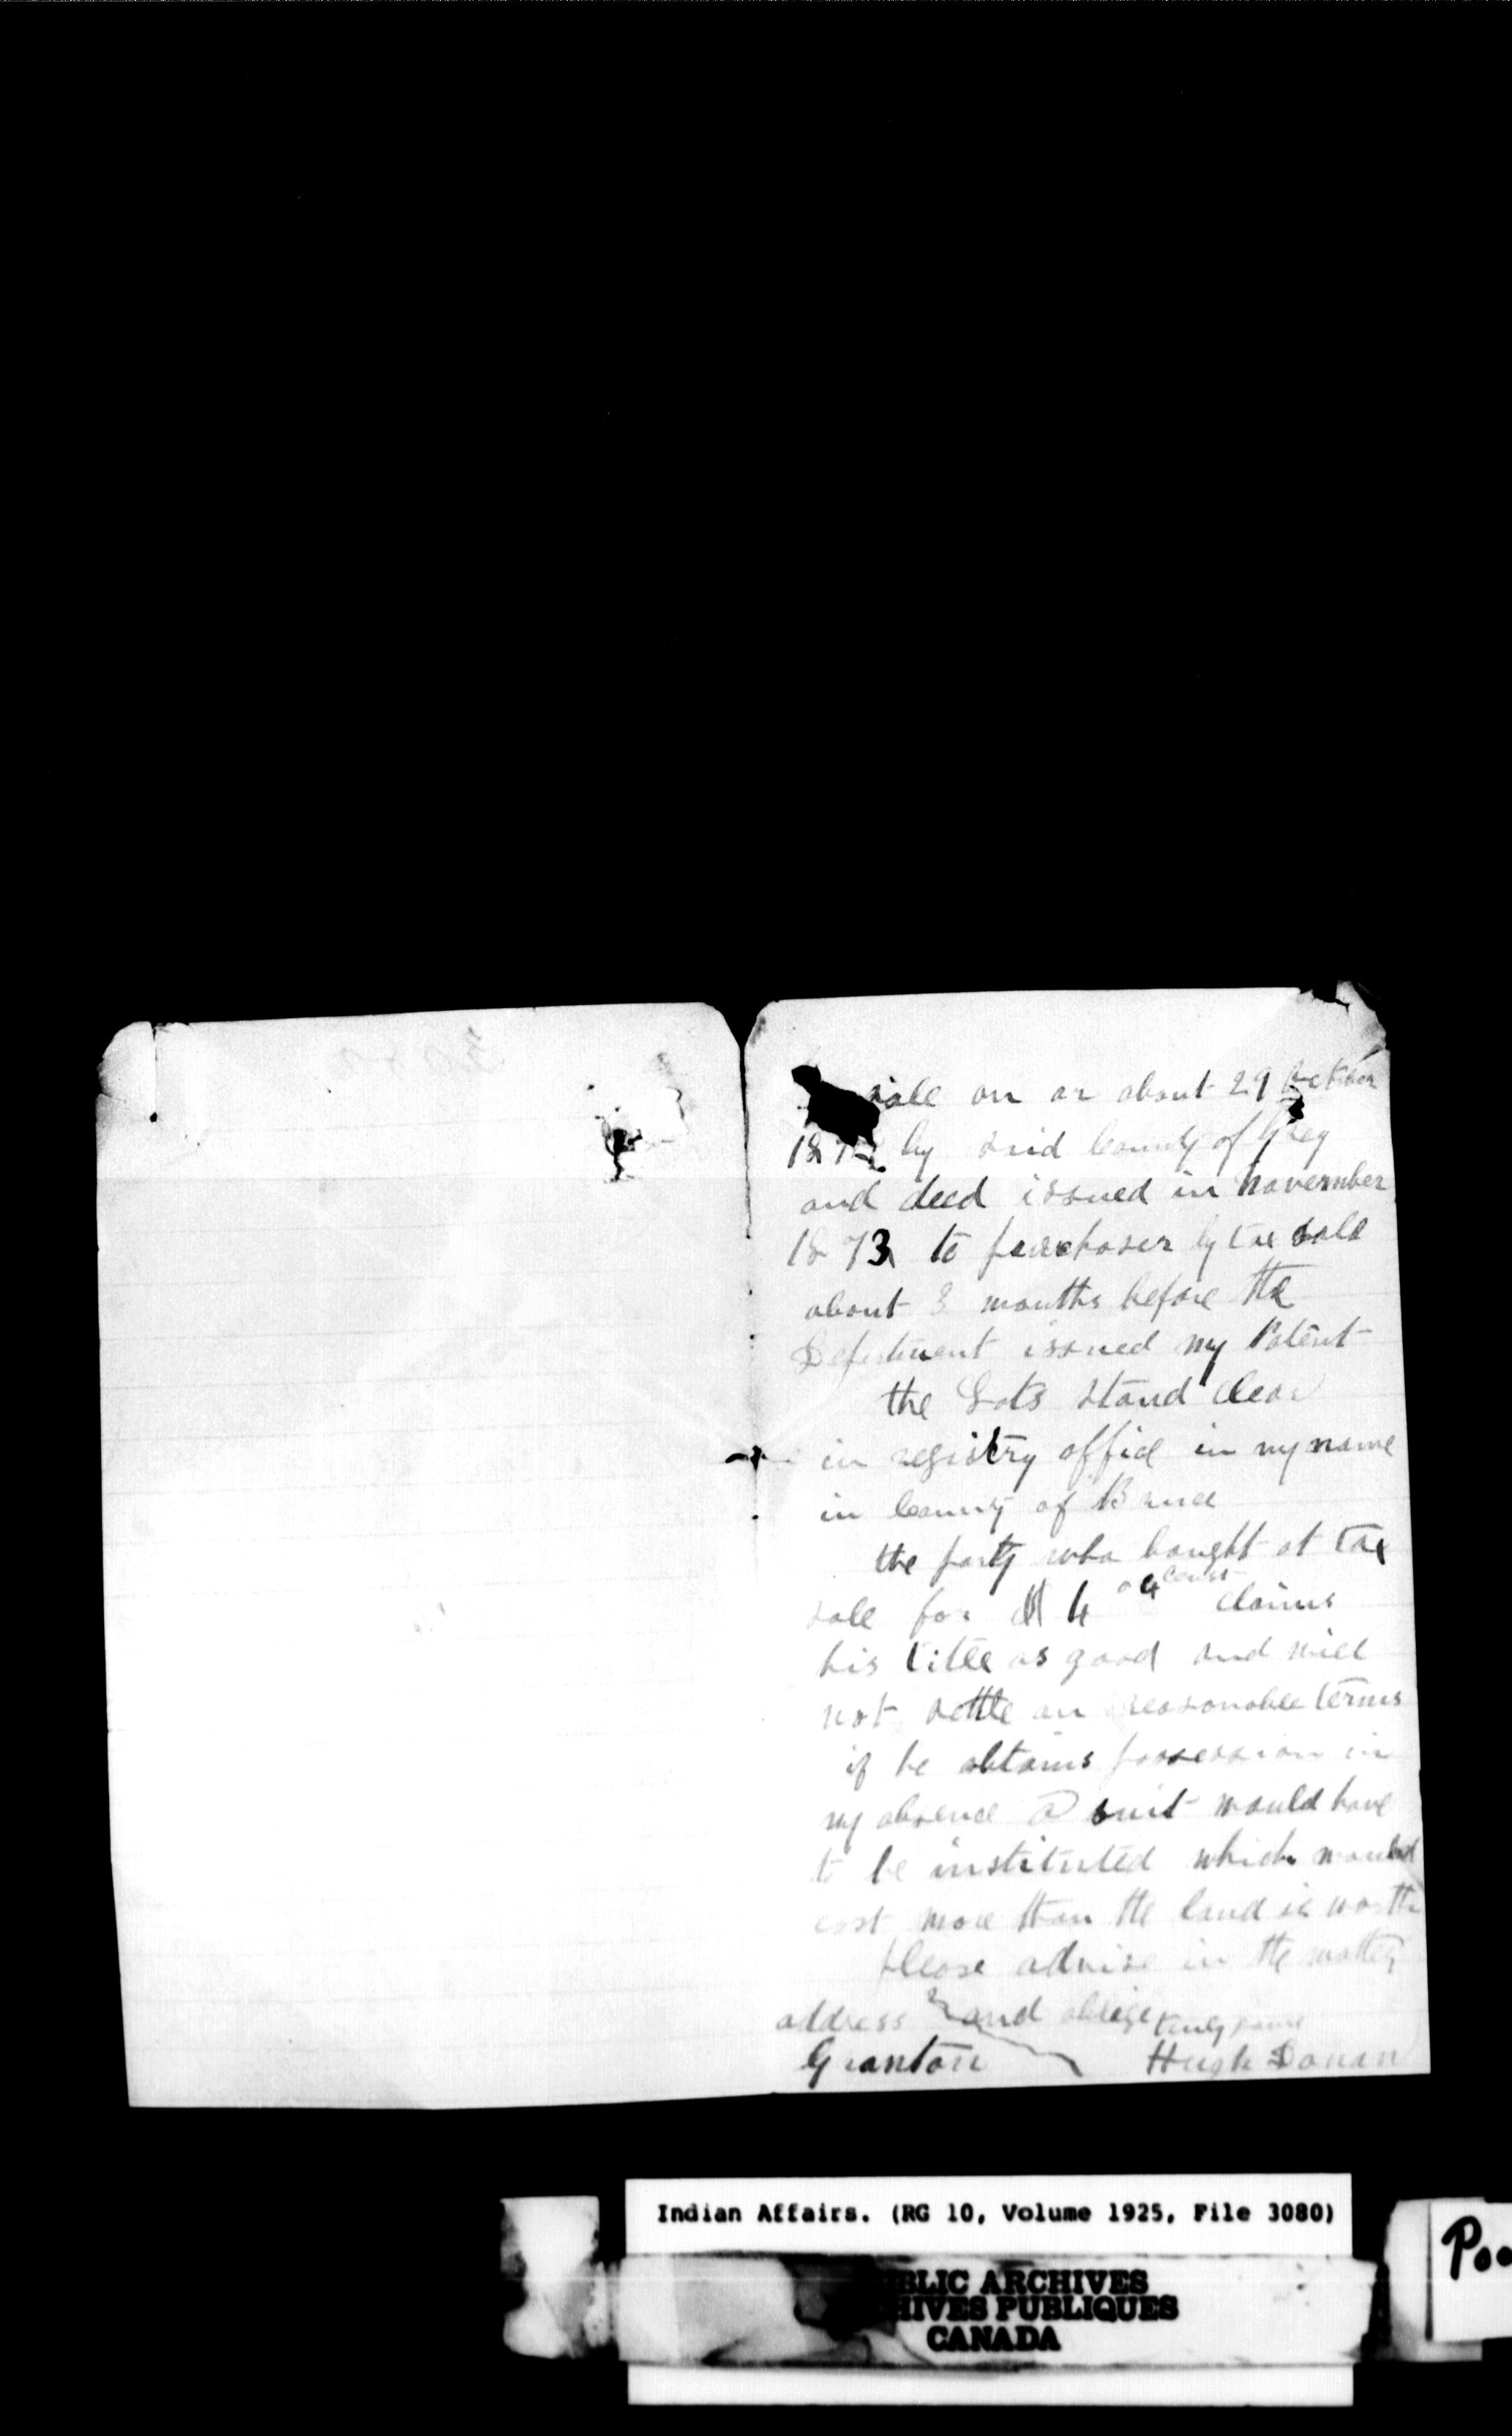 sale on or about 29 October
187 by said County of Grey
and deed issued in November
1873 to purchaser by tax sale
about 3 months before the
Department issued my Patent
the Lots stand clear
in registry office in my name
in County of Bruce
the party who bought at tax
sale for $4 04 cents claims
his title as good and will
not settle on reasonable terms
if he obtains possession in
my absence a suit would have
to be instituted which would
cost more than the land is worth
please advise in the matter
address and oblige truly yours
Granton Hugh Donan
Indian Affairs. (RG 10, Volume 1925, File 3080)
BLIC ARCHIVES
HIVES PUBLIQUES
CANADA
Poo